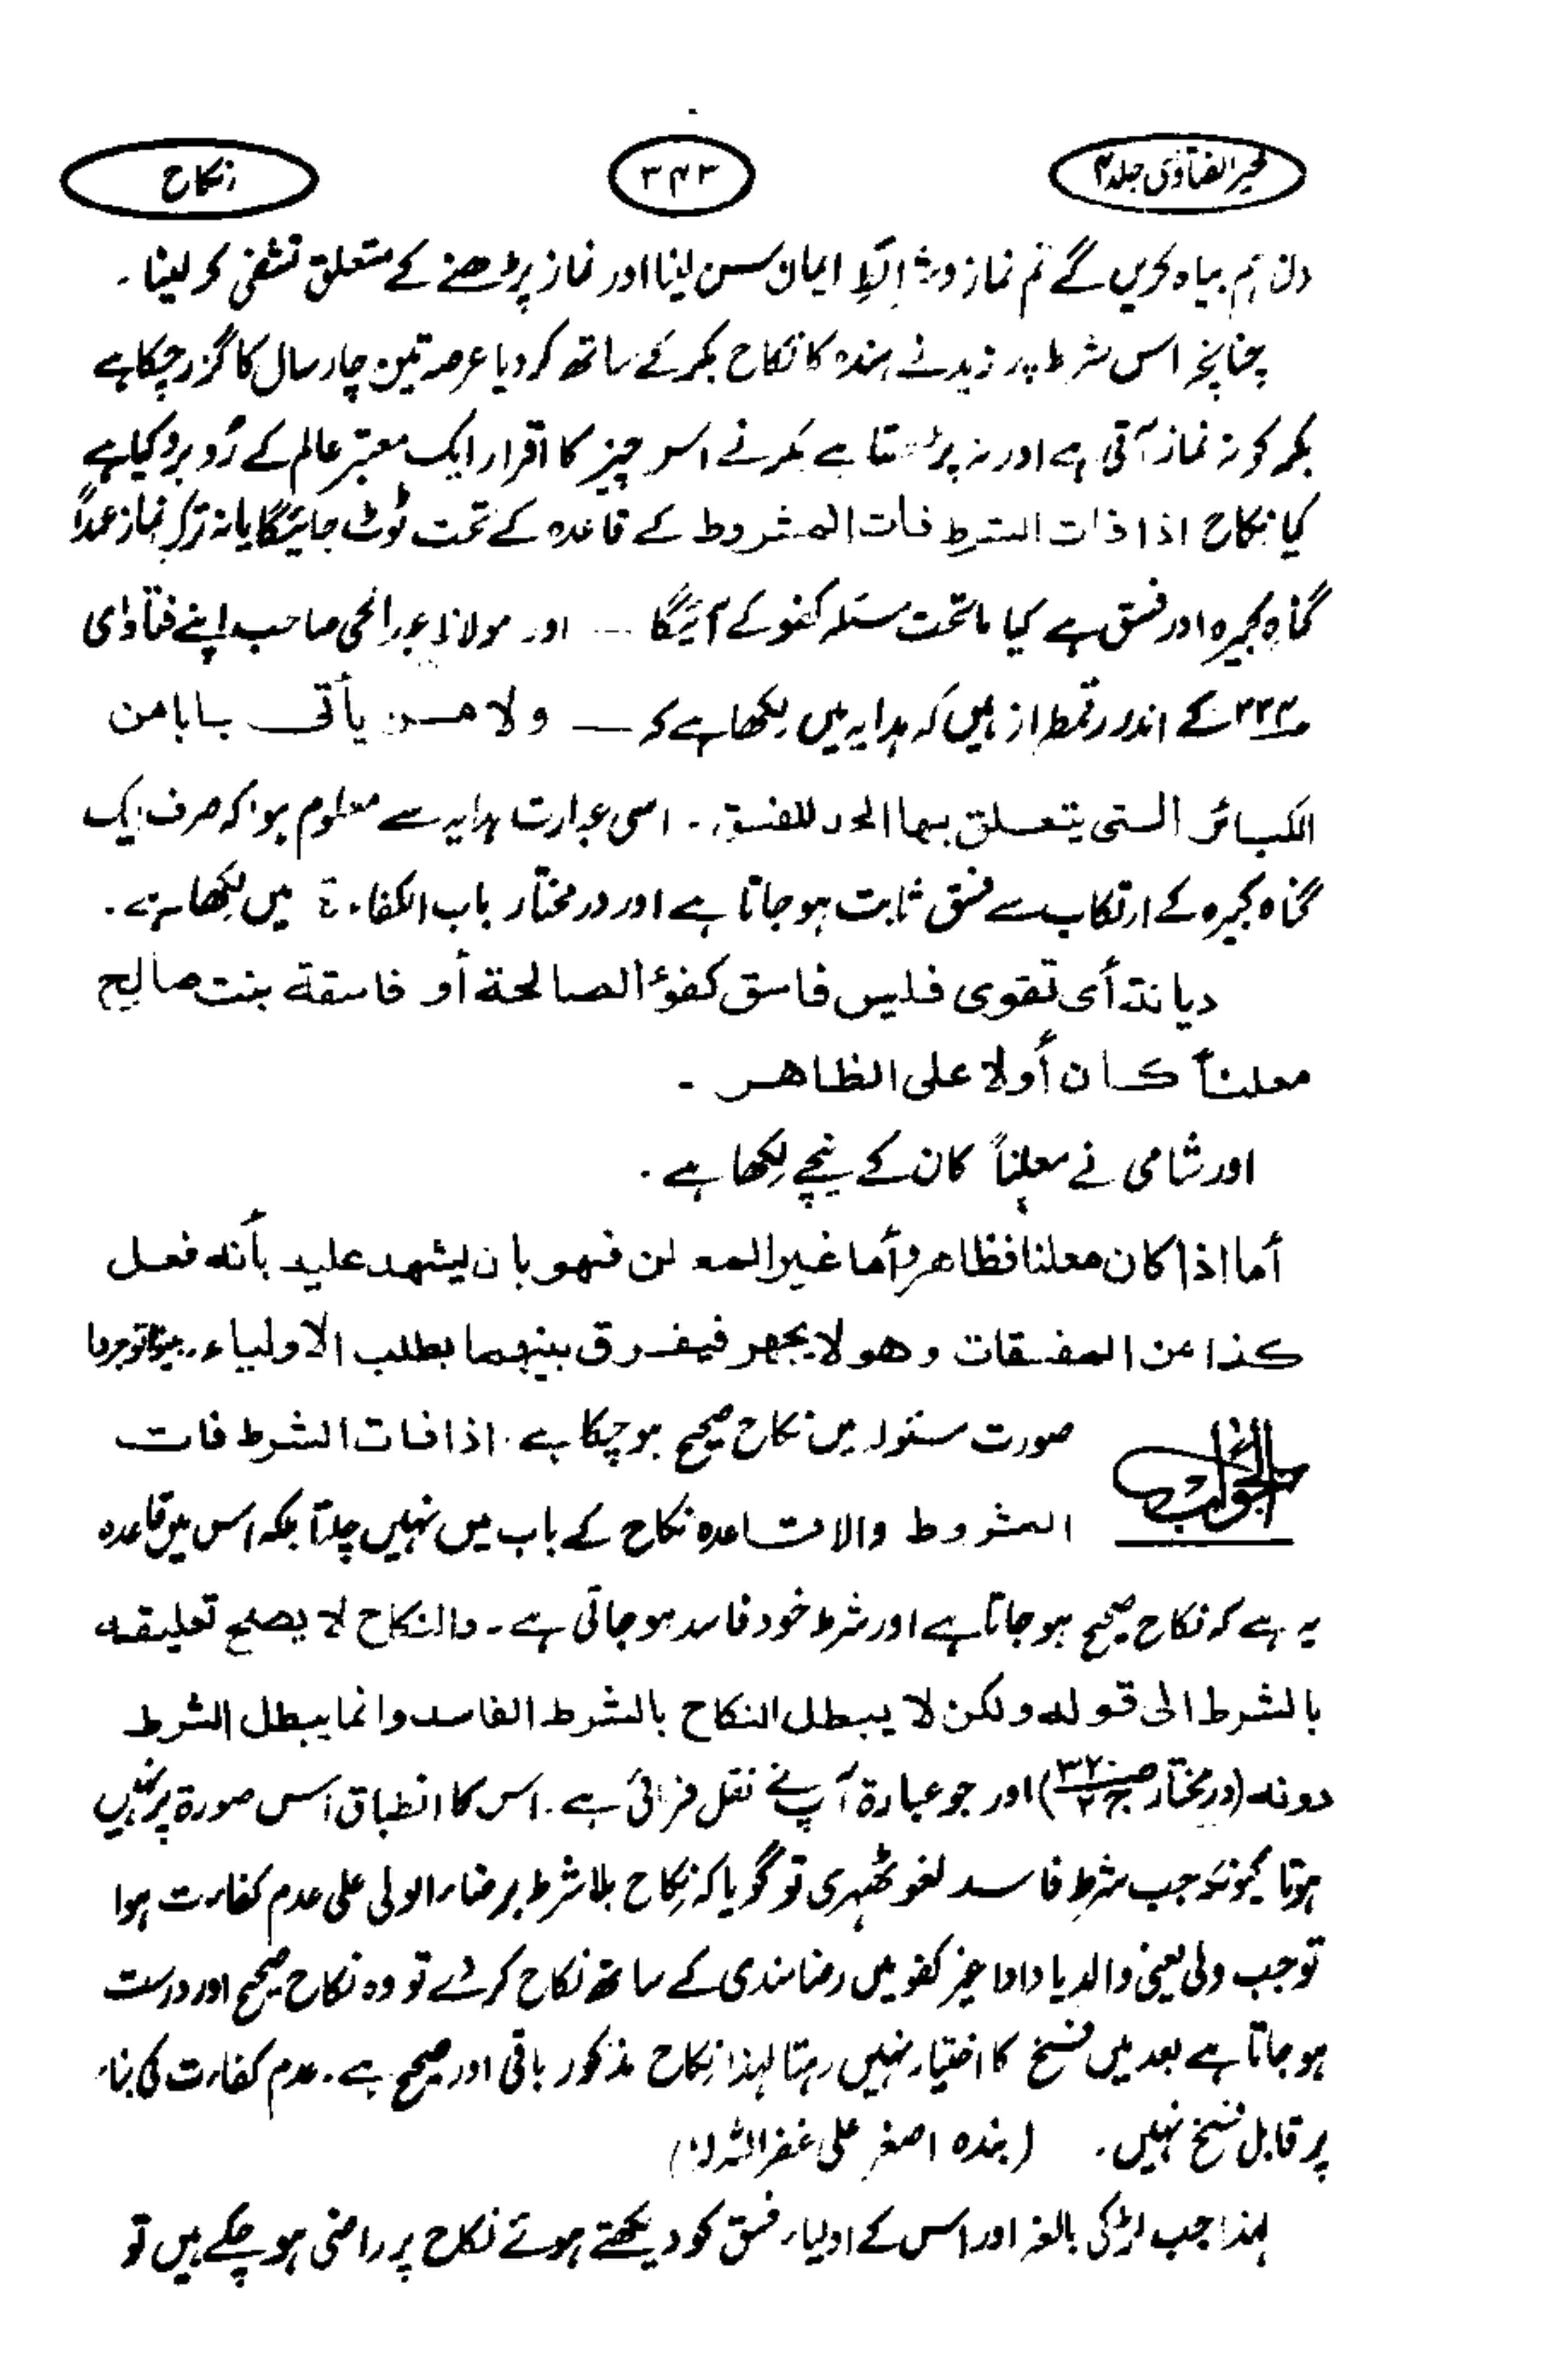 خیر الفتاوی جلد ۴
۳۴۳
نکاح
دن ہم بیاہ کریں گے تم نماز و شرائطِ ایمان سن لینا اور نماز پڑھنے کے متعلق تشفی کر لینا۔
چنانچہ اس شرط پر زید نے ہندہ کا نکاح بکر کے ساتھ کر دیا عرصہ تین چار سال کا گزر چکا ہے
بکر کو نہ نماز آتی ہے اور نہ پڑھتا ہے بکر نے اس چیز کا اقرار ایک معتبر عالم کے رُو برو کیا ہے
کیا نکاح اذا فات الشرط فات المشروط کے قاعدہ کے تحت ٹوٹ جائیگا یا نہ ترک نماز عمداً
گناہِ کبیرہ اور فسق ہے کیا ماتحت مسئلہ کفو کے آئیگا — اور مولانا عبدالحی صاحب اپنے فتاوای
کے اندر رقمطراز ہیں کہ ہدایہ میں لکھا ہے کہ — ولا من یأتی بابا من
الکبائر التی یتعلق بہا الحد للفسق۔ اسی عبارت ہدایہ سے معلوم ہوا کہ صرف ایک
گناہ کبیرہ کے ارتکاب سے فسق ثابت ہو جاتا ہے اور در مختار باب الکفاءۃ میں لکھا ہے۔
دیانۃ أی تقوی فلیس فاسق کفؤ الصالحۃ أو فاسقۃ بنت صالح
معلناً کان أولا علی الظاھر۔
اور شامی نے معلناً کان کے نیچے لکھا ہے۔
أما اذا کان معلنا فظاھر وأما غیر المعلن فہو بان لیشہد علیہ بأنہ فعل
کذا من المفسقات وھو لا یجھر فیفرق بینہما بطلب الاولیاء۔ بینوا توجروا
الجواب
صورت مسئولہ میں نکاح صحیح ہو چکا ہے۔ اذا فات الشرط فات
المشروط والا قاعدہ نکاح کے باب میں نہیں چلتا بلکہ اس میں قاعدہ
یہ ہے کہ نکاح صحیح ہو جاتا ہے اور شرط خود فاسد ہو جاتی ہے۔ والنکاح لا یصح تعلیقہ
بالشرط الی قولہ ولکن لا یبطل النکاح بالشرط الفاسد وانما یبطل الشرط
دونہ (در مختار) اور جو عبارۃ آپ نے نقل فرمائی ہے۔ اس کا انطباق اس صورۃ پر نہیں
ہوتا کیونکہ جب شرطِ فاسد لغو ٹھہری تو گویا کہ نکاح بلا شرط برضاء الولی علی عدم کفاءت ہوا
تو جب ولی یعنی والد یا دادا غیر کفو میں رضامندی کے ساتھ نکاح کر دے تو وہ نکاح صحیح اور درست
ہو جاتا ہے بعد میں فسخ کا اختیار نہیں رہتا لہذا نکاح مذکور باقی اور صحیح ہے۔ عدم کفاءت کی بناء
پر قابل فسخ نہیں۔ (بندہ اصغر علی غفر اللہ لہ)
لہذا جب لڑکی بالغہ اور اس کے اولیاء فسق کو دیکھتے ہوئے نکاح پر راضی ہو چکے ہیں تو